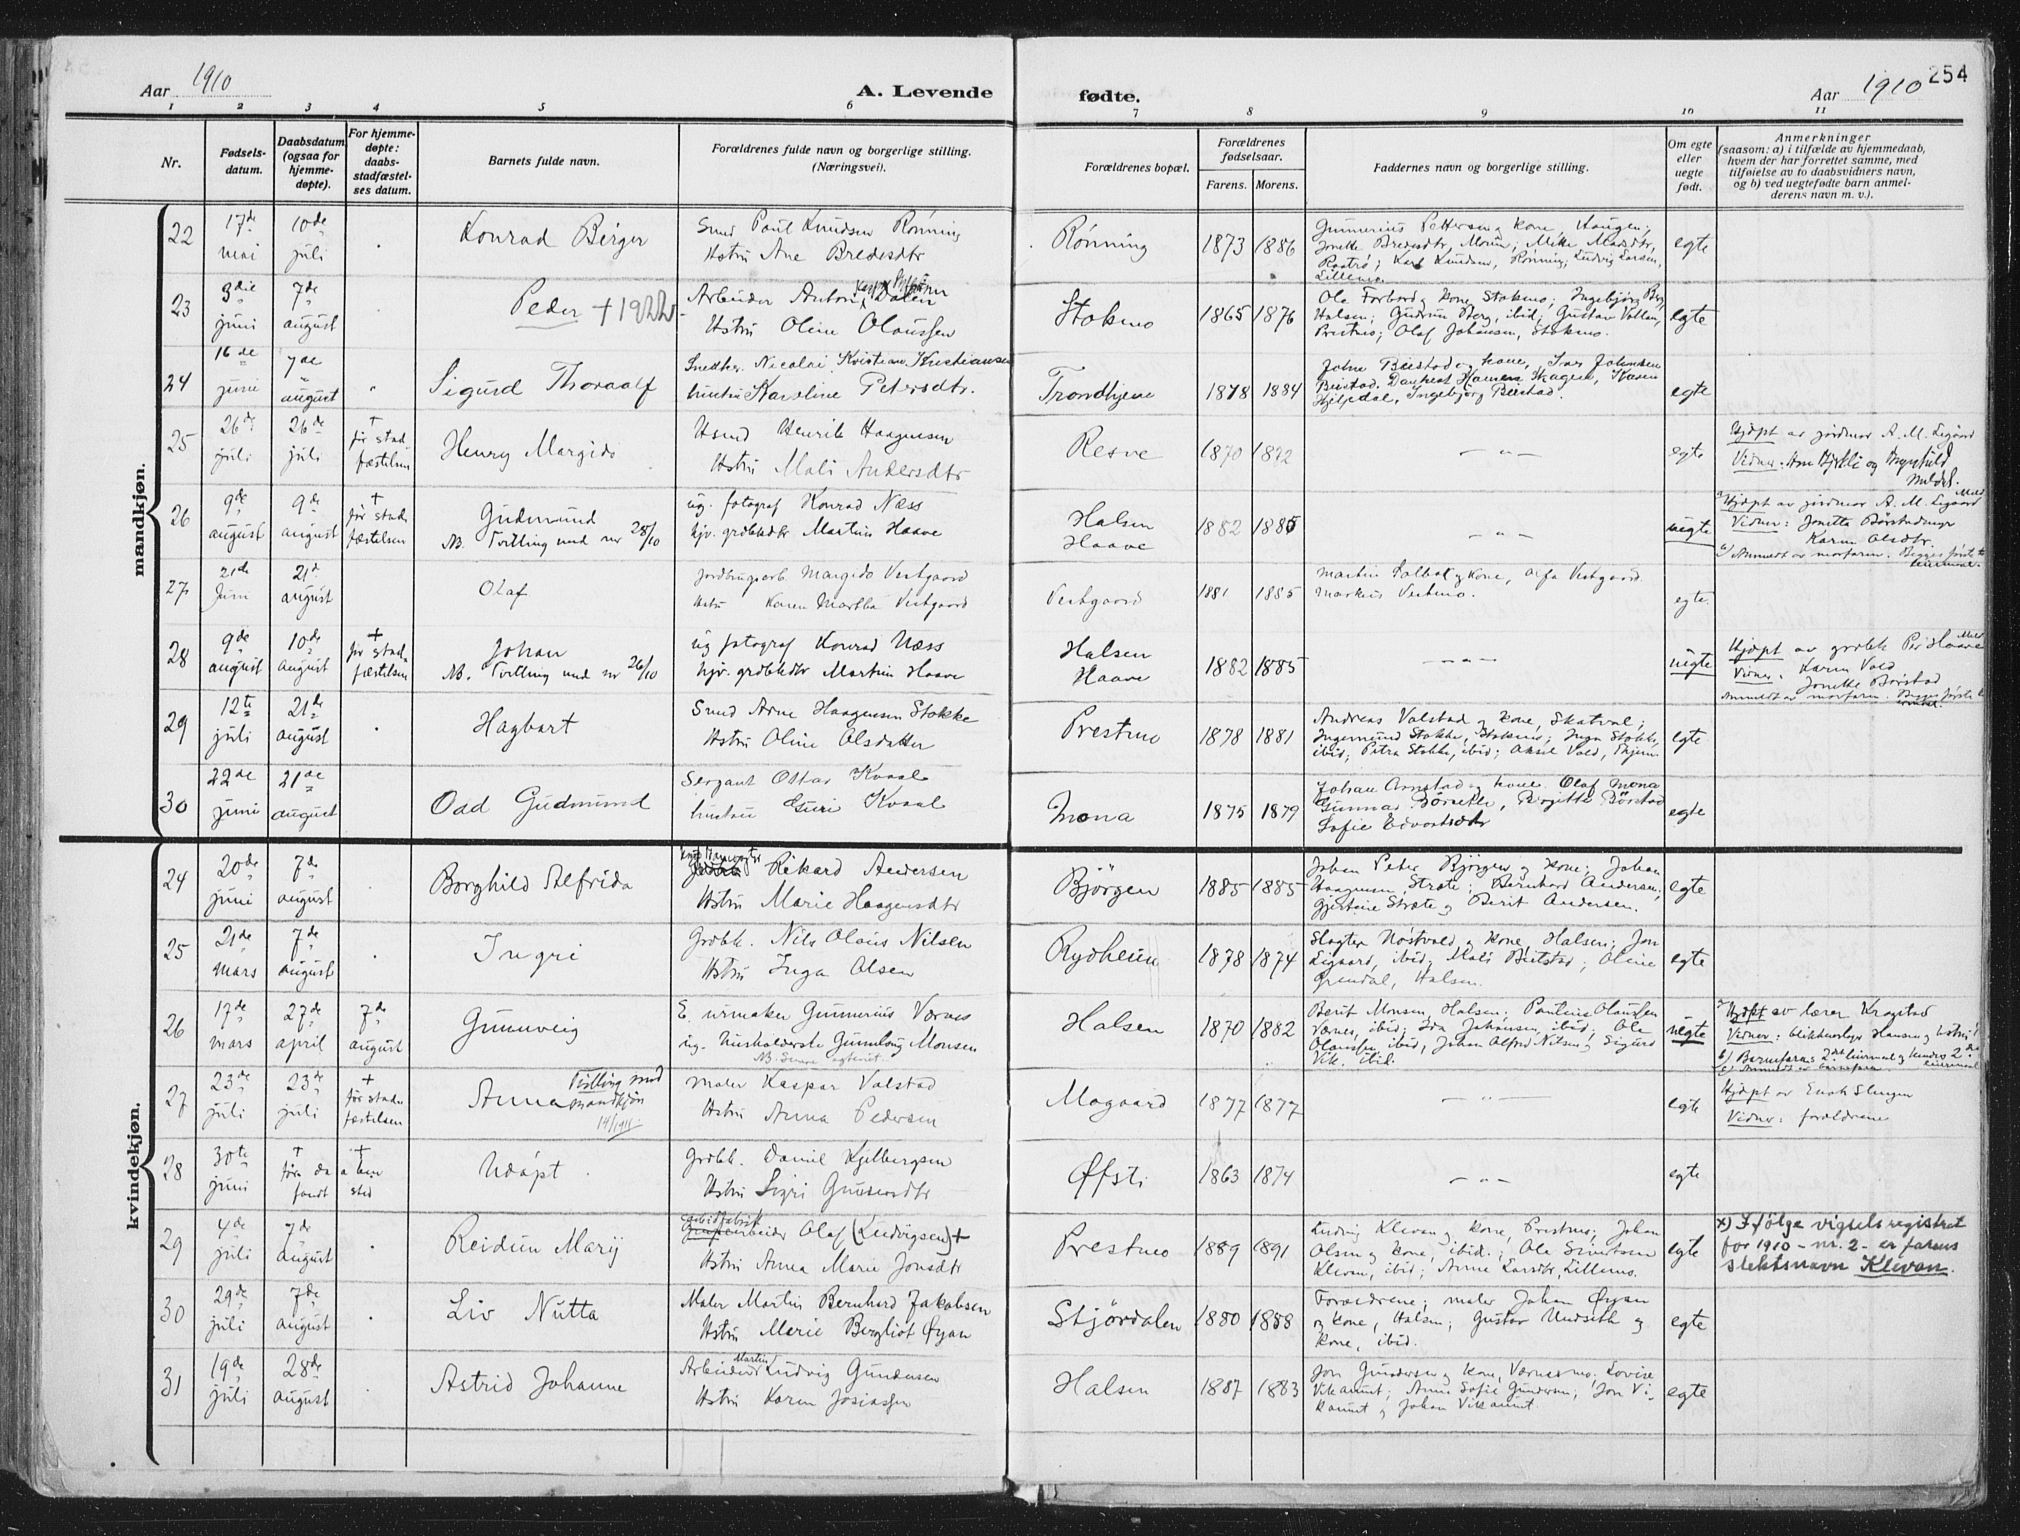 Aar 1910
A. Levende
fødte.
Aar 1910
254
1 2 3 4 5 6 7 8 9 10 11
Nr.
Fødsels-
datum.
Daabsdatum
(ogsaa for
hjemme-
døpte).
For hjemme-
døpte:
daabs-
stadfæstel-
ses datum.
Barnets fulde navn.
Forældrenes fulde navn og borgerlige stilling.
(Næringsvei).
Forældrenes bopæl.
Forældrenes
fødselsaar.
Farens. Morens.
Faddernes navn og borgerlige stilling.
Om egte
eller
uegte
født.
Anmerkninger
(saasom: a) i tilfælde av hjemmedaab,
hvem der har forrettet samme, med
tilføielse av to daabsvidners navn,
og b) ved uegtefødte barn anmel-
derens navn m. v.).
mandkjøn.
22
17de mai
10de juli
Konrad Berger
Smed Paul Knudsen Rønning
Hstru Ane Bredesdtr
Rønning
1873 1886
Gunnerius Pettersen og kone, Haugen;
Jonette Bredesdtr, Moum; Mette Marsdtr,
Rostrø; Karl Knudsen, Rønning; Ludvig Larsen,
Lillemo.
egte
23
3die juni
7de august
Peder +1922
Arbeider Anton Dalen
Hstru Oline Olaussen
Stokmo
1865 1876
Ole Forbord og kone, Stokmo; Ingebjørg Berg,
Halsen; Gudrun Berg, ibid; Gustav Vollan,
Prestmo; Olaf Johansen, Stokmo.
egte
24
16de juni
7de august
Sigurd Thoralf
Nicolai Kristian Kristiansen
hustru Karoline Petersdtr.
Trondhjem
1878 1884
John Beistad og kone, Ivar Johansen
Beistad.
Ingebjørg Beistad.
egte
25
26de juli
26de juli
+
før stad-
fæstelsen
Henry Margido
Hsmd Henrik Haagensen
Hstru Mali Andersdtr
Resve
1870 1872
— " —
egte
Hjdøpt av jordmor A. M. Ligaard
Vidner:
26
9de august
9de august
+
før stad-
fæstelsen
Gudmund
NB. Tvilling med nr 28/10
ug. fotograf Konrad Næss
pjv. grdbkdtr Martine Haave
Halsen
Haave
1882 1885
— " —
uegte
Hjdøpt av jordmor A. M. Ligaard
Vidner: Jonetta Børstad
Karen Olsdtr.
Anmeldt av morfaren. Begges første leiermaal.
27
21de Juni
21de august
Olaf
Jordbrugsarb. Margido Vestgaard
Hstru Karen Martha Vestgaard
Vestgaard
1881 1885
Martin Salbat og kone, Vestgaard
Markus Vestmo.
egte
28
9de august
10de august
+
før stad-
fæstelsen
Johan
NB. Tvilling med nr 26/10
ug fotograf Konrad Næss
pjv. grdbkdtr Martine Haave
Halsen
Haave
1882 1885
— " —
uegte
Hjdøpt av grdbk Per Haave
Vidner: Karen Vold
Jonette Børstad
Anmeldt av morfaren. Begges første
29
12te juli
21de august
Hagbart
Smed Arne Haagensen Stokke
Hstru Oline Olsdatter
Prestmo
1878 1881
Andreas Valstad og kone, Skatval;
Ingemund Stokke, Stokmo; Inga Stokke,
ibid; Petra Stokke, ibid; Aksel Vold, Thjem
egte
30
22de juni
21de august
Odd Gudmund
Sergeant Ottar Kvaal
hustru Guri Kvaal
Mona
1875 1879
Johan Arnstad og kone Olaf Mona
Gunnar Børseth, Birgitte Børstad
Sofie Edvartsdtr
egte
kvindekjøn.
24
20de juni
7de august
Borghild Alfrida
Rikard Andersen
Hstru Marie Haagensdtr
Bjørgen
1885 1885
Johan Peter Bjørgen og kone; Johan
Haagensen, Stræte; Bernhard Andersen;
Gjertine Stræte og Berit Andersen.
egte
25
21de mars
7de august
Ingri
Grdbk. Nils Olaus Nilsen
Hstru Inga Olsen
Rydheim
1878 1874
Slagter Nøstvold og kone, Halsen; Jon
Ligaard, ibid; Mali Beitstad; Oline
Grendal, Halsen.
egte
26
17de mars
27de april
7de august
Gunnveig
E. urmaker Gunnerius Værnes
ug. husholderske Gunnlaug Monsen
NB. Senere egteviet.
Halsen
1870 1882
Berit Monsen, Halsen; Paulius Olaussen
Værnes, ibid; Ida Johansen, ibid; Ole
Olaussen, ibid, Johan Alfred Nilsen og Sigurd
Vik, ibid.
uegte
Hjdøpt av lærer Kragstad
Vidner: blikkenslager Hansen og hstru
b) Barnefarens 2det leiermaal og hendes 2det leiermaal
27
23de juli
23de juli
+
før stad-
fæstelsen
Anna Tvilling med
mandkjøn
14/1911
Maler Kaspar Valstad
Hstru Anna Pedersen
Mogaard
1877 1877
— " —
egte
Hjdøpt av Enok Slungen
Vidner: forældrene
28
30te juni
+
før daaben
fandt
sted
Udøpt
Grdbk. Daniel Kjelbergsen
Hstru Sigri Gunnersdtr
Øfsti
1863 1874
— " —
egte
29
4de juli
7de august
Reidun Marij
arbeider Olaf (Ludvigsen) +
Hstru Anna Marie Jonsdtr
Prestmo
1889 1891
Ludvig Klevan og kone, Prestmo; Johan
Olsen og kone, ibid.; Ole Sivertsen
Klevan, ibid; Anne Larsdtr, Lillemo.
egte
x) Ifølge vigselsregistret
for 1910 - nr. 2 - er farens
slektsnavn Klevan.
30
29de juli
7de august
Liv Nutta
Maler Martin Bernhard Jakobsen
Hstru Marie Bergliot Øyan
Stjørdalen
1880 1888
Forældrene; maler Johan Øyan
og kone, Halsen; Gustav Undseth og
kone, ibid.
egte
31
19de juli
28de august
Astrid Johanne
Arbeider Martin Ludvig Gundersen
Hstru Karen Josiassen
Halsen
1887 1883
Jon Gundersen og kone, Værnesmo; Lovise
Vikaunet; Anne Sofie Gundersen; Jon Vi-
kaunet og Johan Vikaunet.
egte